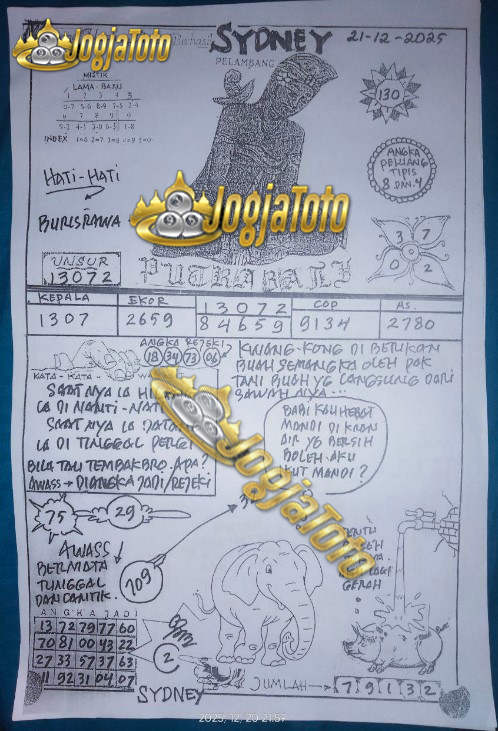 JogjaToto
Berhasil SYDNEY
21-12-2025
PELAMBANG
MISTIK
LAMA - BARU
1 2 3 4 5
0-7 5-6 8-9
INDEX
130
ANGKA
PELUANG
TIPIS
8 DAN 4
HATI-HATI
BURISRAWA
JogjaToto
3 7
0 2
UNSUR
13072
PUTRA BALI
KEPALA EKOR 13072 COP AS.
1307 2659 84659 9134 2780
ANGKA REJEKI
18 34 73 06
KWANG-KONG DI BERIKAN
BUAH SEMANGKA OLEH PAK
TANI BUAH YG LANGSUNG DARI
SAWAH NYA...
KATA - KATA
SAAT NYA IA
IA DI NANTI-NANTI
SAAT NYA IA DATANG
IA DI TINGGAL PERGI
BILA TAU TEMBAK BRO. APA?
AWASS → DIANGKA JADI/REJEKI
BABI KAU HEBAT
MANDI DI KRAN
AIR YG BERSIH
BOLEH AKU
IKUT MANDI?
JogjaToto
75
29
AWASS
BERMATA
TUNGGAL
DAN CANTIK.
709
GERAH
ANGKA JADI
13 72 79 77 60
70 81 00 43 22
27 33 57 37 63
11 92 31 04 07
2
SYDNEY
JUMLAH → 7 9 1 3 2
2025, 12, 20 21:57